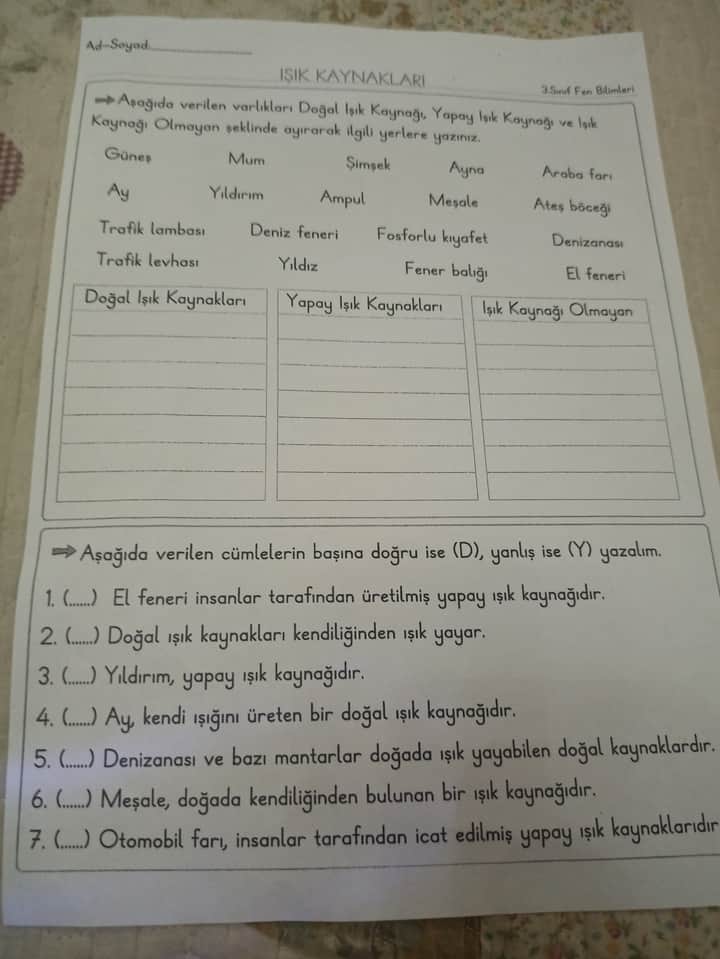 Ad-Soyad:
IŞIK KAYNAKLARI
3.Sınıf Fen Bilimleri
Aşağıda verilen varlıkları Doğal Işık Kaynağı, Yapay Işık Kaynağı ve Işık
Kaynağı Olmayan şeklinde ayırarak ilgili yerlere yazınız.
Güneş Mum Şimşek Ayna Araba farı
Ay Yıldırım Ampul Meşale Ateş böceği
Trafik lambası Deniz feneri Fosforlu kıyafet Denizanası
Trafik levhası Yıldız Fener balığı El feneri
Doğal Işık Kaynakları Yapay Işık Kaynakları Işık Kaynağı Olmayan
Aşağıda verilen cümlelerin başına doğru ise (D), yanlış ise (Y) yazalım.
1. (......) El feneri insanlar tarafından üretilmiş yapay ışık kaynağıdır.
2. (......) Doğal ışık kaynakları kendiliğinden ışık yayar.
3. (......) Yıldırım, yapay ışık kaynağıdır.
4. (......) Ay, kendi ışığını üreten bir doğal ışık kaynağıdır.
5. (......) Denizanası ve bazı mantarlar doğada ışık yayabilen doğal kaynaklardır.
6. (......) Meşale, doğada kendiliğinden bulunan bir ışık kaynağıdır.
7. (......) Otomobil farı, insanlar tarafından icat edilmiş yapay ışık kaynaklarıdır